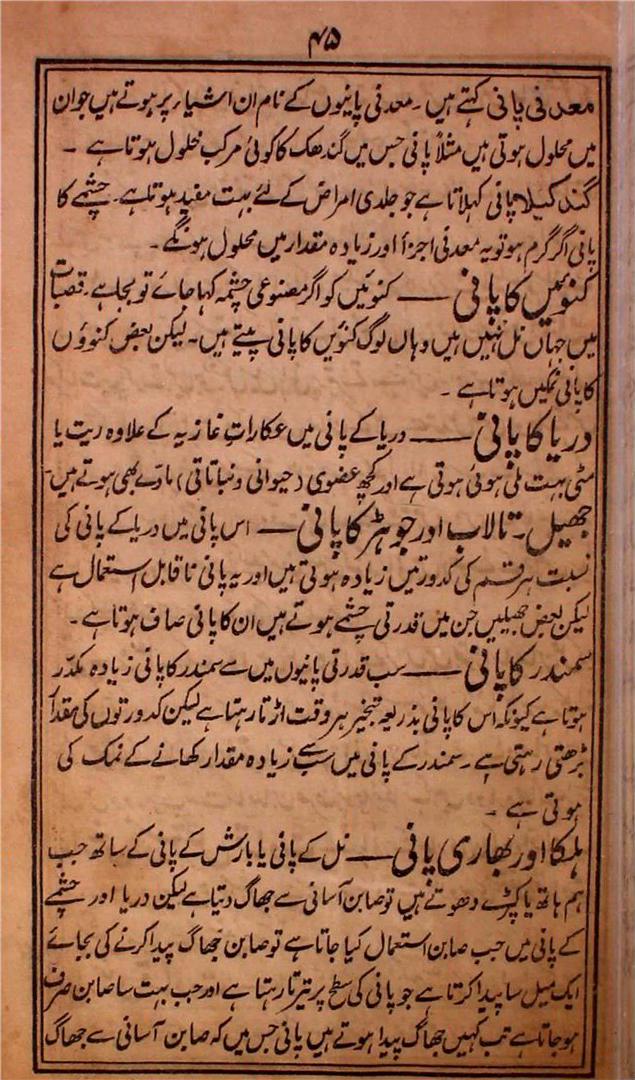 ۴۵
معدنی پانی کہتے ہیں ۔ معدنی پانیوں کے نام ان اشیاء پر ہوتے ہیں جو ان
میں محلول ہوتی ہیں مثلاً پانی جس میں گندھک کا کوئی مرکب حلول ہوتا ہے ۔
گندکیلا پانی کہلاتا ہے جو جلدی امراض کے لئے بہت مفید ہوتا ہے۔ چشمے کا
پانی اگر گرم ہو تو یہ معدنی اجزأ اور زیادہ مقدار میں محلول ہونگے ۔
کنوئیں کا پانی —— کنوئیں کو اگر مصنوعی چشمہ کہا جائے تو بجا ہے۔ قصبات
میں جہاں نل نہیں ہیں وہاں لوگ کنوئیں کا پانی پیتے ہیں ۔ لیکن بعض کنوؤں
کا پانی نمکیں ہوتا ہے ۔
دریا کا پانی —— دریا کے پانی میں عکارات غازیہ کے علاوہ ریت یا
مٹی بہت ملی ہوئی ہوتی ہے اور کچھ عضوی (حیوانی و نباتاتی) مادے بھی ہوتے ہیں۔
جھیل ۔ تالاب اور جوہڑ کا پانی —— اس پانی میں دریا کے پانی کی
نسبت ہر قسم کی کدورتیں زیادہ ہوتی ہیں اور یہ پانی ناقابل استعمال ہے
لیکن بعض جھیلیں جن میں قدرتی چشمے ہوتے ہیں ان کا پانی صاف ہوتا ہے ۔
سمندر کا پانی —— سب قدرتی پانیوں میں سے سمندر کا پانی زیادہ مکدّر
ہوتا ہے کیونکہ اس کا پانی بذریعہ تبخیر ہر وقت اڑتا رہتا ہے لیکن کدورتوں کی مقدار
بڑھتی رہتی ہے ۔ سمندر کے پانی میں سب سے زیادہ مقدار کھانے کے نمک کی
ہوتی ہے ۔
ہلکا اور بھاری پانی —— نل کے پانی یا بارش کے پانی کے ساتھ جب
ہم ہاتھ یا کپڑے دھوتے ہیں تو صابن آسانی سے جھاگ دیتا ہے لیکن دریا اور چشمے
کے پانی میں جب صابن استعمال کیا جاتا ہے تو صابن جھاگ پیدا کرنے کی بجائے
ایک میل سا پیدا کرتا ہے جو پانی کی سطح پر تیرتا رہتا ہے اور جب بہت سا صابن صرف
ہو جاتا ہے تب کہیں جھاگ پیدا ہوتے ہیں پانی جس میں کہ صابن آسانی سے جھاگ